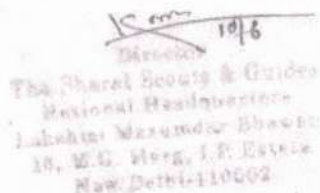 10/6
Director
The Bharat Scouts & Guides
National Headquarters
Lakshmi Mazumdar Bhawan
16, M.G. Marg, I.P. Estate
New Delhi-110002